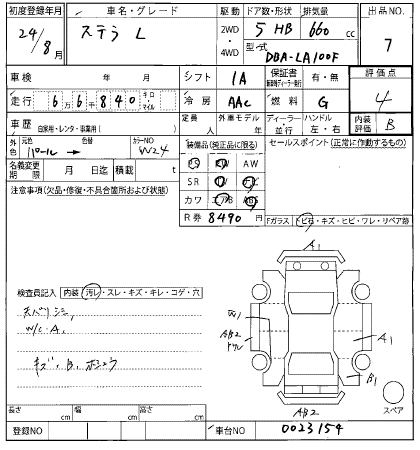 初度登録年月 車名・グレード 駆動 ドア数・形状 排気量 出品NO.
24/8月 ステラ L 2WD・4WD 5 HB 660 cc 7
型式 DBA-LA100F
車検 年 月 シフト IA 保証書 有・無 評価点
走行 6万6千840 キロ・マイル 冷房 AAC 燃料 G 4
車歴 自家用・レンタ・事業用( ) 定員 人 外車モデル 年 ディーラー・並行 ハンドル 左・右 内装評価 B
外色 元色 パール → 色替 カラーNO W24 装備品(純正品に限る) セールスポイント(正常に作動するもの)
名義変更期限 月 日迄 積載 t PS PW AW
注意事項(欠品・修復・不具合箇所および状態) SR TV ナビ
カワ エアB ABS
R券 8490 円 Fガラス トビ石・キズ・ヒビ・ワレ・リペア跡
A1
検査員記入 内装 汚レ・スレ・キズ・キレ・コゲ・穴
天バリシミ
W/C・A.
キズ・B.
W1
AB2
A1
B1
AB2
スペア
長さ cm 幅 cm 高さ cm
登録NO 車台NO 0023154